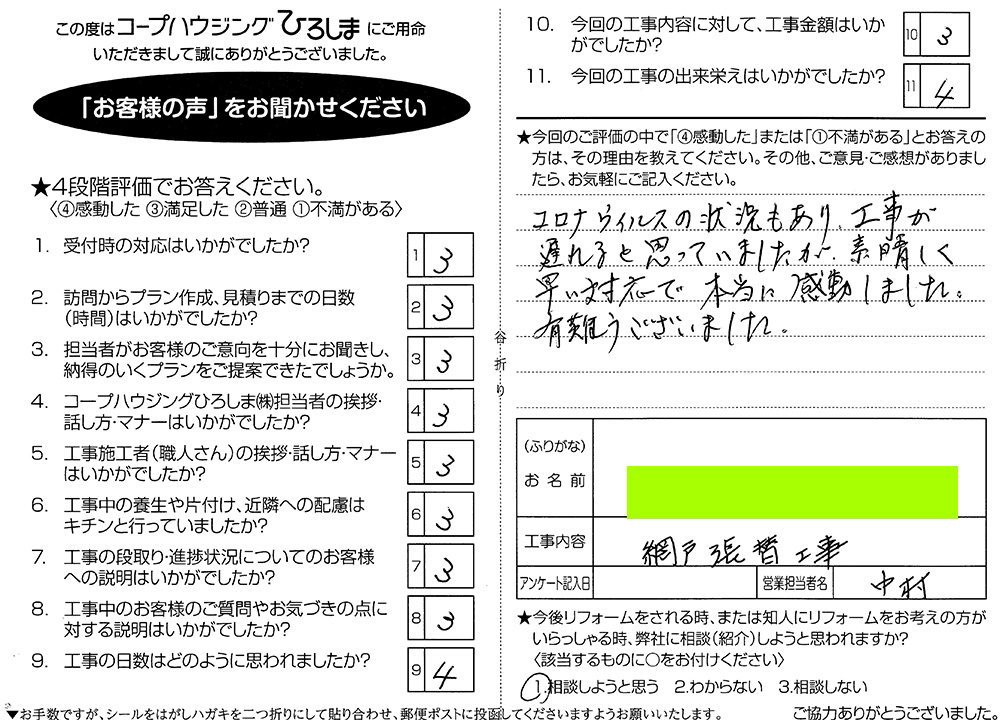 この度はコープハウジングひろしまにご用命
いただきまして誠にありがとうございました。
「お客様の声」をお聞かせください
★4段階評価でお答えください。
〈④感動した ③満足した ②普通 ①不満がある〉
1. 受付時の対応はいかがでしたか?
1 3
2. 訪問からプラン作成、見積りまでの日数
（時間）はいかがでしたか?
2 3
3. 担当者がお客様のご意向を十分にお聞きし、
納得のいくプランをご提案できたでしょうか。
3 3
4. コープハウジングひろしま㈱担当者の挨拶・
話し方・マナーはいかがでしたか?
4 3
5. 工事施工者（職人さん）の挨拶・話し方・マナー
はいかがでしたか?
5 3
6. 工事中の養生や片付け、近隣への配慮は
キチンと行っていましたか?
6 3
7. 工事の段取り・進捗状況についてのお客様
への説明はいかがでしたか?
7 3
8. 工事中のお客様のご質問やお気づきの点に
対する説明はいかがでしたか?
8 3
9. 工事の日数はどのように思われましたか?
9 4
谷折り
10. 今回の工事内容に対して、工事金額はいか
がでしたか?
10 3
11. 今回の工事の出来栄えはいかがでしたか?
11 4
★今回のご評価の中で「④感動した」または「①不満がある」とお答えの
方は、その理由を教えてください。その他、ご意見・ご感想がありまし
たら、お気軽にご記入ください。
コロナウィルスの状況もあり、工事が
遅れると思っていましたが、素晴しく
早い対応で本当に感動しました。
有難うございました。
（ふりがな）
お名前
工事内容 網戸張替工事
アンケート記入日 営業担当者名 中村
★今後リフォームをされる時、または知人にリフォームをお考えの方が
いらっしゃる時、弊社に相談（紹介）しようと思われますか?
〈該当するものに○をお付けください〉
1.相談しようと思う 2.わからない 3.相談しない
▼お手数ですが、シールをはがしハガキを二つ折りにして貼り合わせ、郵便ポストに投函してくださいますようお願いいたします。
ご協力ありがとうございました。